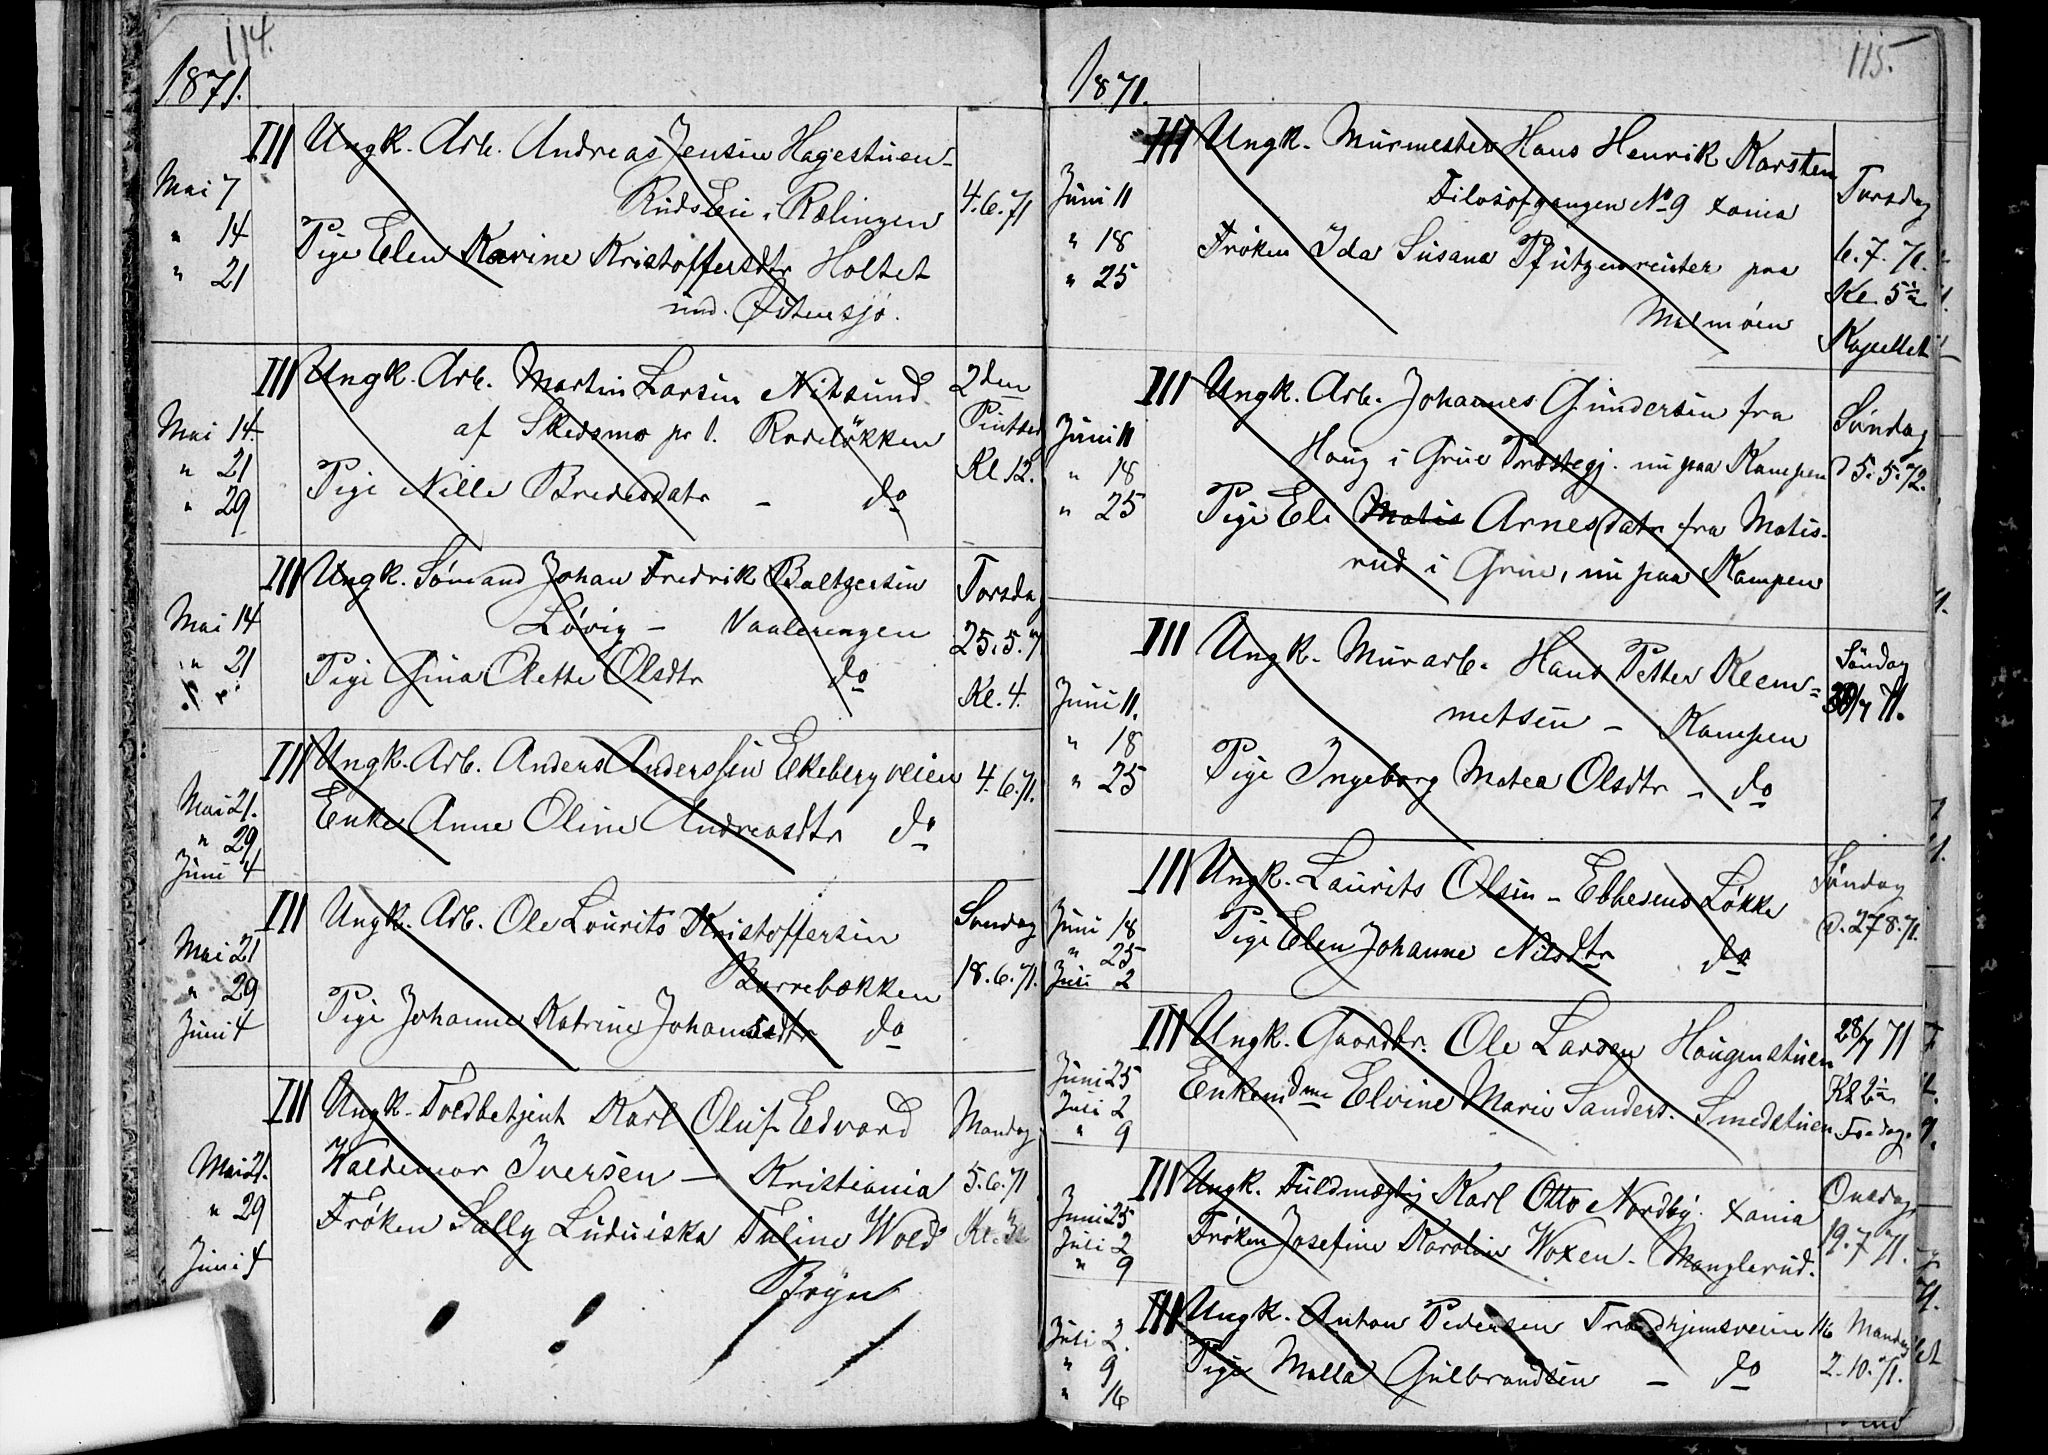 114.
1871.
III Ungk. Arb. Andreas Jensen Hagestuen-
Mai 7 Rudseie i Rælingen 4.6.71
" 14 Pige Elen Karine Kristoffersdtr Holtet
" 21 und. Østensjø.
III Ungk. Arb. Martin Larsen Nitsund 2den
Mai 14 af Skedsmo pr t. Rodeløkken Pintsed
" 21 Pige Nille Bredesdatr - do Kl 12.
" 29
III Ungk. Sømand Johan Fredrik Baltzersen Torsdag
Mai 14 Løvig - Vaalerengen 25.5.71
" 21 Pige Gina Olette Olsdtr do Kl. 4.
III Ungk. Arb. Anders Anderssen Ekebergveien 4.6.71.
Mai 21. Enke Anne Oline Andreasdtr do
" 29
Juni 4
III Ungk. Arb. Ole Lourits Kristoffersen Søndag
Mai 21 Barrebækken 18.6.71.
" 29 Pige Johanne Katrine Johansdtr do
Juni 4
III Ungk. Toldbetjent Karl Oluf Edvard Mandag
Mai 21. Waldemar Iversen - Kristiania 5.6.71
" 29 Frøken Sally Luduiska Taline Wold Kl.
Juni 4 Bryn
115.
1871.
III Ungk. Murmester Hans Henrik Karsten
Juni 11 Filosofgangen No 9 Xania Torsdag
" 18 Frøken Ida Susana Pfützenreuter paa 6.7.71.
" 25 Malmøen Kl. 5½
Kapellet
III Ungk. Arb. Johannes Gundersen fra Søndag
Juni 11 Houg i Grue Præstegj. nu paa Kampen d 5.5.72.
" 18 Pige Eli Matis Arnesdatr fra Matis-
" 25 rud i Grue, nu paa Kampen
III Ungk. Murarb. Hans Petter Klem= Søndag
Juni 11. metsen - Kampen 30/7 71.
" 18 Pige Ingeborg Matea Olsdtr - do
" 25
III Ungk. Laurits Olsen - Ebbesens Løkke Søndag
Juni 18 Pige Elen Johanne Nilsdtr do d. 27 8.71.
" 25
Juli 2
III Ungk. Gaardbr. Ole Larsen Hougenstuen 28/7 71
Juni 25 Enkemdme Elvine Marie Sanders. Smedstuen Kl
Juli 2 Fredag.
" 9
III Ungk. Fuldmægtig Karl Otto Nordby. Xania Onsdag
Juni 25 Frøken Josefine Karoline Woxen - Manglerud. 19.7 71.
Juli 2
" 9
III Ungk. Anton Pedersen Trondhjemsveien 116 Mandag
Juli 2. Pige Malla Gulbrandsen - do 2.10.71.
" 9
" 16